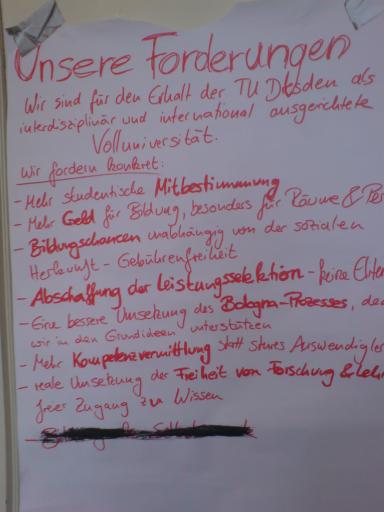 Unsere Forderungen
Wir sind für den Erhalt der TU Dresden als
interdisziplinär und international ausgerichtete
Volluniversität.
Wir fordern konkret:
- Mehr studentische Mitbestimmung
- Mehr Geld für Bildung, besonders für Räume & Per
- Bildungschancen unabhängig von der sozialen
Herkunft - Gebührenfreiheit
- Abschaffung der Leistungsselektion - keine Eliten
- Eine bessere Umsetzung des Bologna-Prozesses, den
wir in den Grundideen unterstützen
- Mehr Kompetenzvermittlung statt stures Auswendigler
- reale Umsetzung der Freiheit von Forschung & Lehr
freier Zugang zu Wissen
-